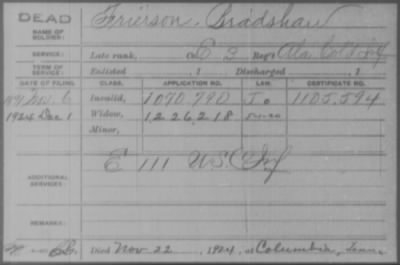 DEAD
NAME OF SOLDIER:
Frierson, Bradshaw
SERVICE:
Late rank, Co. E 3 Reg't Ala Cold Inf
TERM OF SERVICE:
Enlisted , 1 Discharged , 1
DATE OF FILING. CLASS. APPLICATION NO. LAW. CERTIFICATE NO.
1891 Nov. 6 Invalid, 1070,790 Jo 1105,594
1924 Dec 1 Widow, 1,226,218
Minor,
ADDITIONAL SERVICES:
E 111 U.S.C. Inf
REMARKS:
Died Nov 22, 1924, at Columbia, Tenn